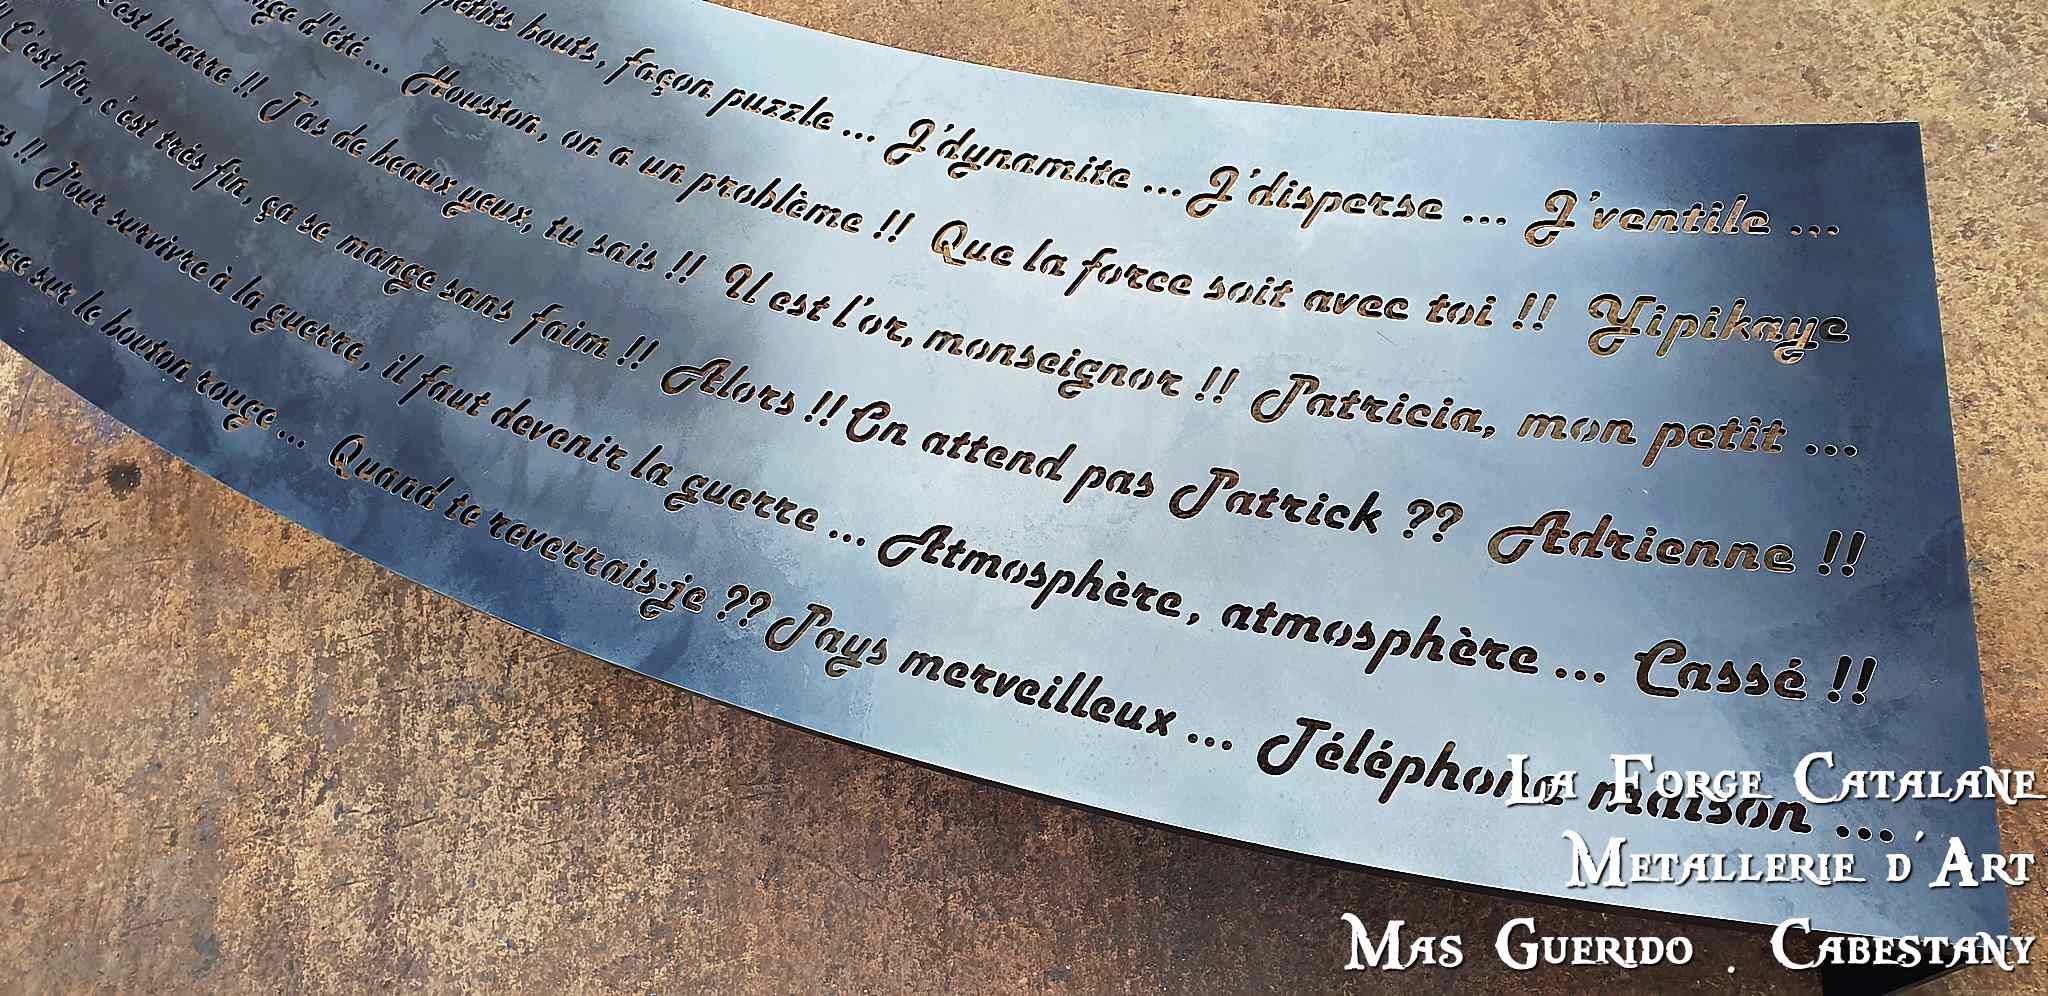 petits bouts, façon puzzle ... J'dynamite ... J'disperse ... J'ventile ...
d'été ... Houston, on a un problème !! Que la force soit avec toi !! Yipikaye
c'est bizarre !! T'as de beaux yeux, tu sais !! Il est l'or, monseignor !! Patricia, mon petit ...
C'est fin, c'est très fin, ça se mange sans faim !! Alors !! On attend pas Patrick ?? Adrienne !!
!! Pour survivre à la guerre, il faut devenir la guerre ... Atmosphère, atmosphère ... Cassé !!
sur le bouton rouge ... Quand te reverrais-je ?? Pays merveilleux ... Téléphone maison ...
La Forge Catalane
Metallerie d'Art
Mas Guerido . Cabestany